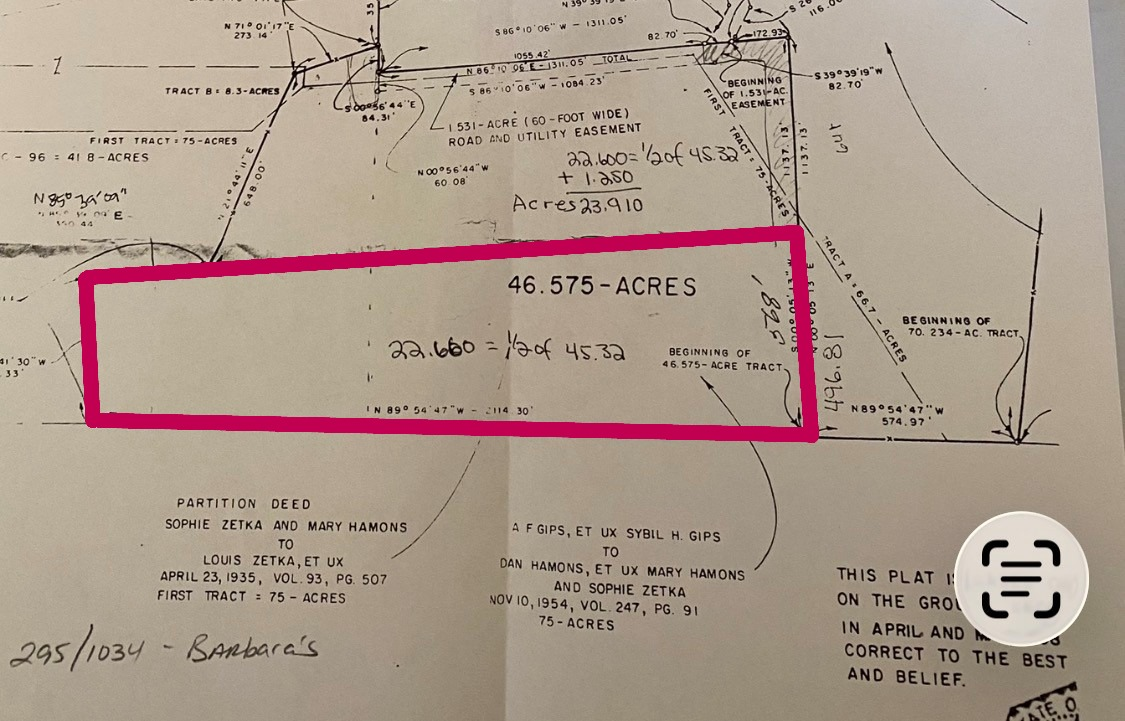 N 71° 01' 17" E
273 14'
35
S 86° 10' 06" W - 1311.05'
82.70'
172.93'
116.0
1
1055.42'
N 86° 10' 06" E - 1311.05' TOTAL
S 86° 10' 06" W - 1084.23'
S 39° 39' 19" W
82.70'
TRACT B = 8.3-ACRES
S 00° 56' 44" E
84.31'
BEGINNING
OF 1.531-AC.
EASEMENT
1.531-ACRE (60-FOOT WIDE)
ROAD AND UTILITY EASEMENT
FIRST TRACT = 75-ACRES
FIRST TRACT = 75-ACRES
C - 96 = 41 8-ACRES
1137.13'
1137.13'
N 00° 56' 44" W
60.08'
22.600 = 1/2 of 45.32
+ 1.250
Acres 23.910
N 21° 44' 11" E
648.00'
N 85° 39' 09"
46.575-ACRES
895'
S 00° 05' 13" W
N 00° 05' 13" E
TRACT A = 66.7 - ACRES
22.660 = 1/2 of 45.32
BEGINNING OF
46.575-ACRE TRACT
BEGINNING OF
70.234-AC. TRACT
41' 30" W
.33'
N 89° 54' 47" W - 2114.30'
N 89° 54' 47" W
574.97'
PARTITION DEED
SOPHIE ZETKA AND MARY HAMONS
TO
LOUIS ZETKA, ET UX
APRIL 23, 1935, VOL. 93, PG. 507
FIRST TRACT = 75-ACRES
A F GIPS, ET UX SYBIL H. GIPS
TO
DAN HAMONS, ET UX MARY HAMONS
AND SOPHIE ZETKA
NOV 10, 1954, VOL. 247, PG. 91
75-ACRES
THIS PLAT
ON THE
IN APRIL AND
CORRECT TO THE BEST
AND BELIEF.
295/1034 - BARbara's